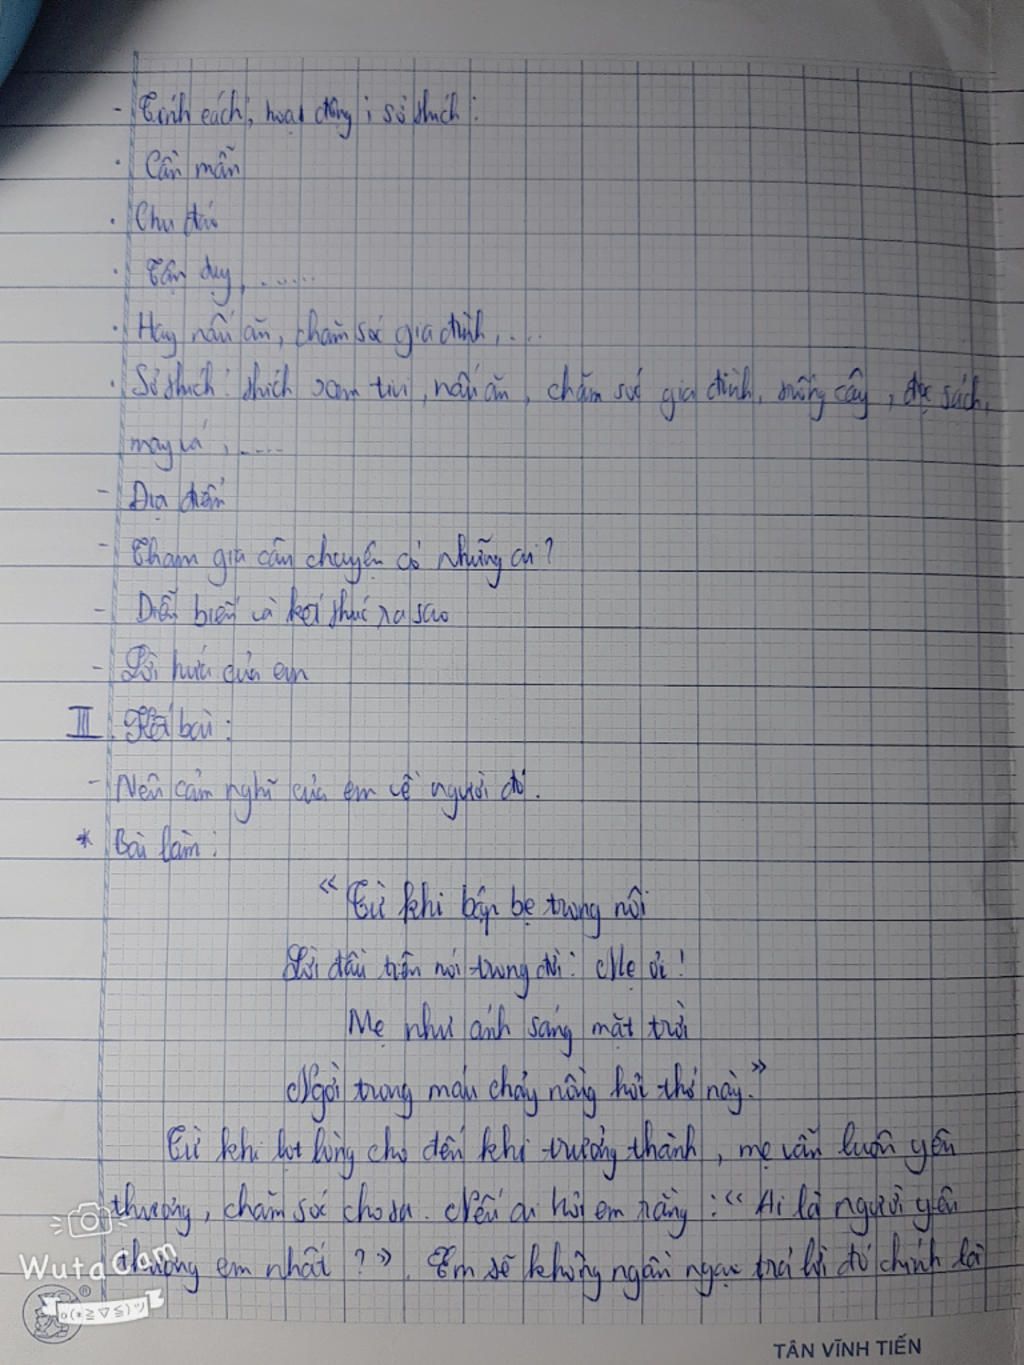 - Tính cách, hoạt động, sở thích:
· Cần mẫn
· Chu đáo
· Tận tụy, ......
· Hay nấu ăn, chăm sóc gia đình, ....
· Sở thích: thích xem tivi, nấu ăn, chăm sóc gia đình, trồng cây, đọc sách,
may vá, .....
- Địa điểm
- Tham gia câu chuyện có những ai?
- Diễn biến và kết thúc ra sao
- Lời hứa của em
III. Kết bài:
- Nêu cảm nghĩ của em về người đó.
* Bài làm:
"Từ khi bập bẹ trong nôi
Lời đầu tiên nói trong đời: Mẹ ơi!
Mẹ như ánh sáng mặt trời
Ngời trong máu chảy nồng hơi thở này."
Từ khi lọt lòng cho đến khi trưởng thành, mẹ vẫn luôn yêu
thương, chăm sóc cho ta. Nếu ai hỏi em rằng: "Ai là người yêu
thương em nhất?". Em sẽ không ngần ngại trả lời đó chính là
WutaCam
TÂN VĨNH TIẾN